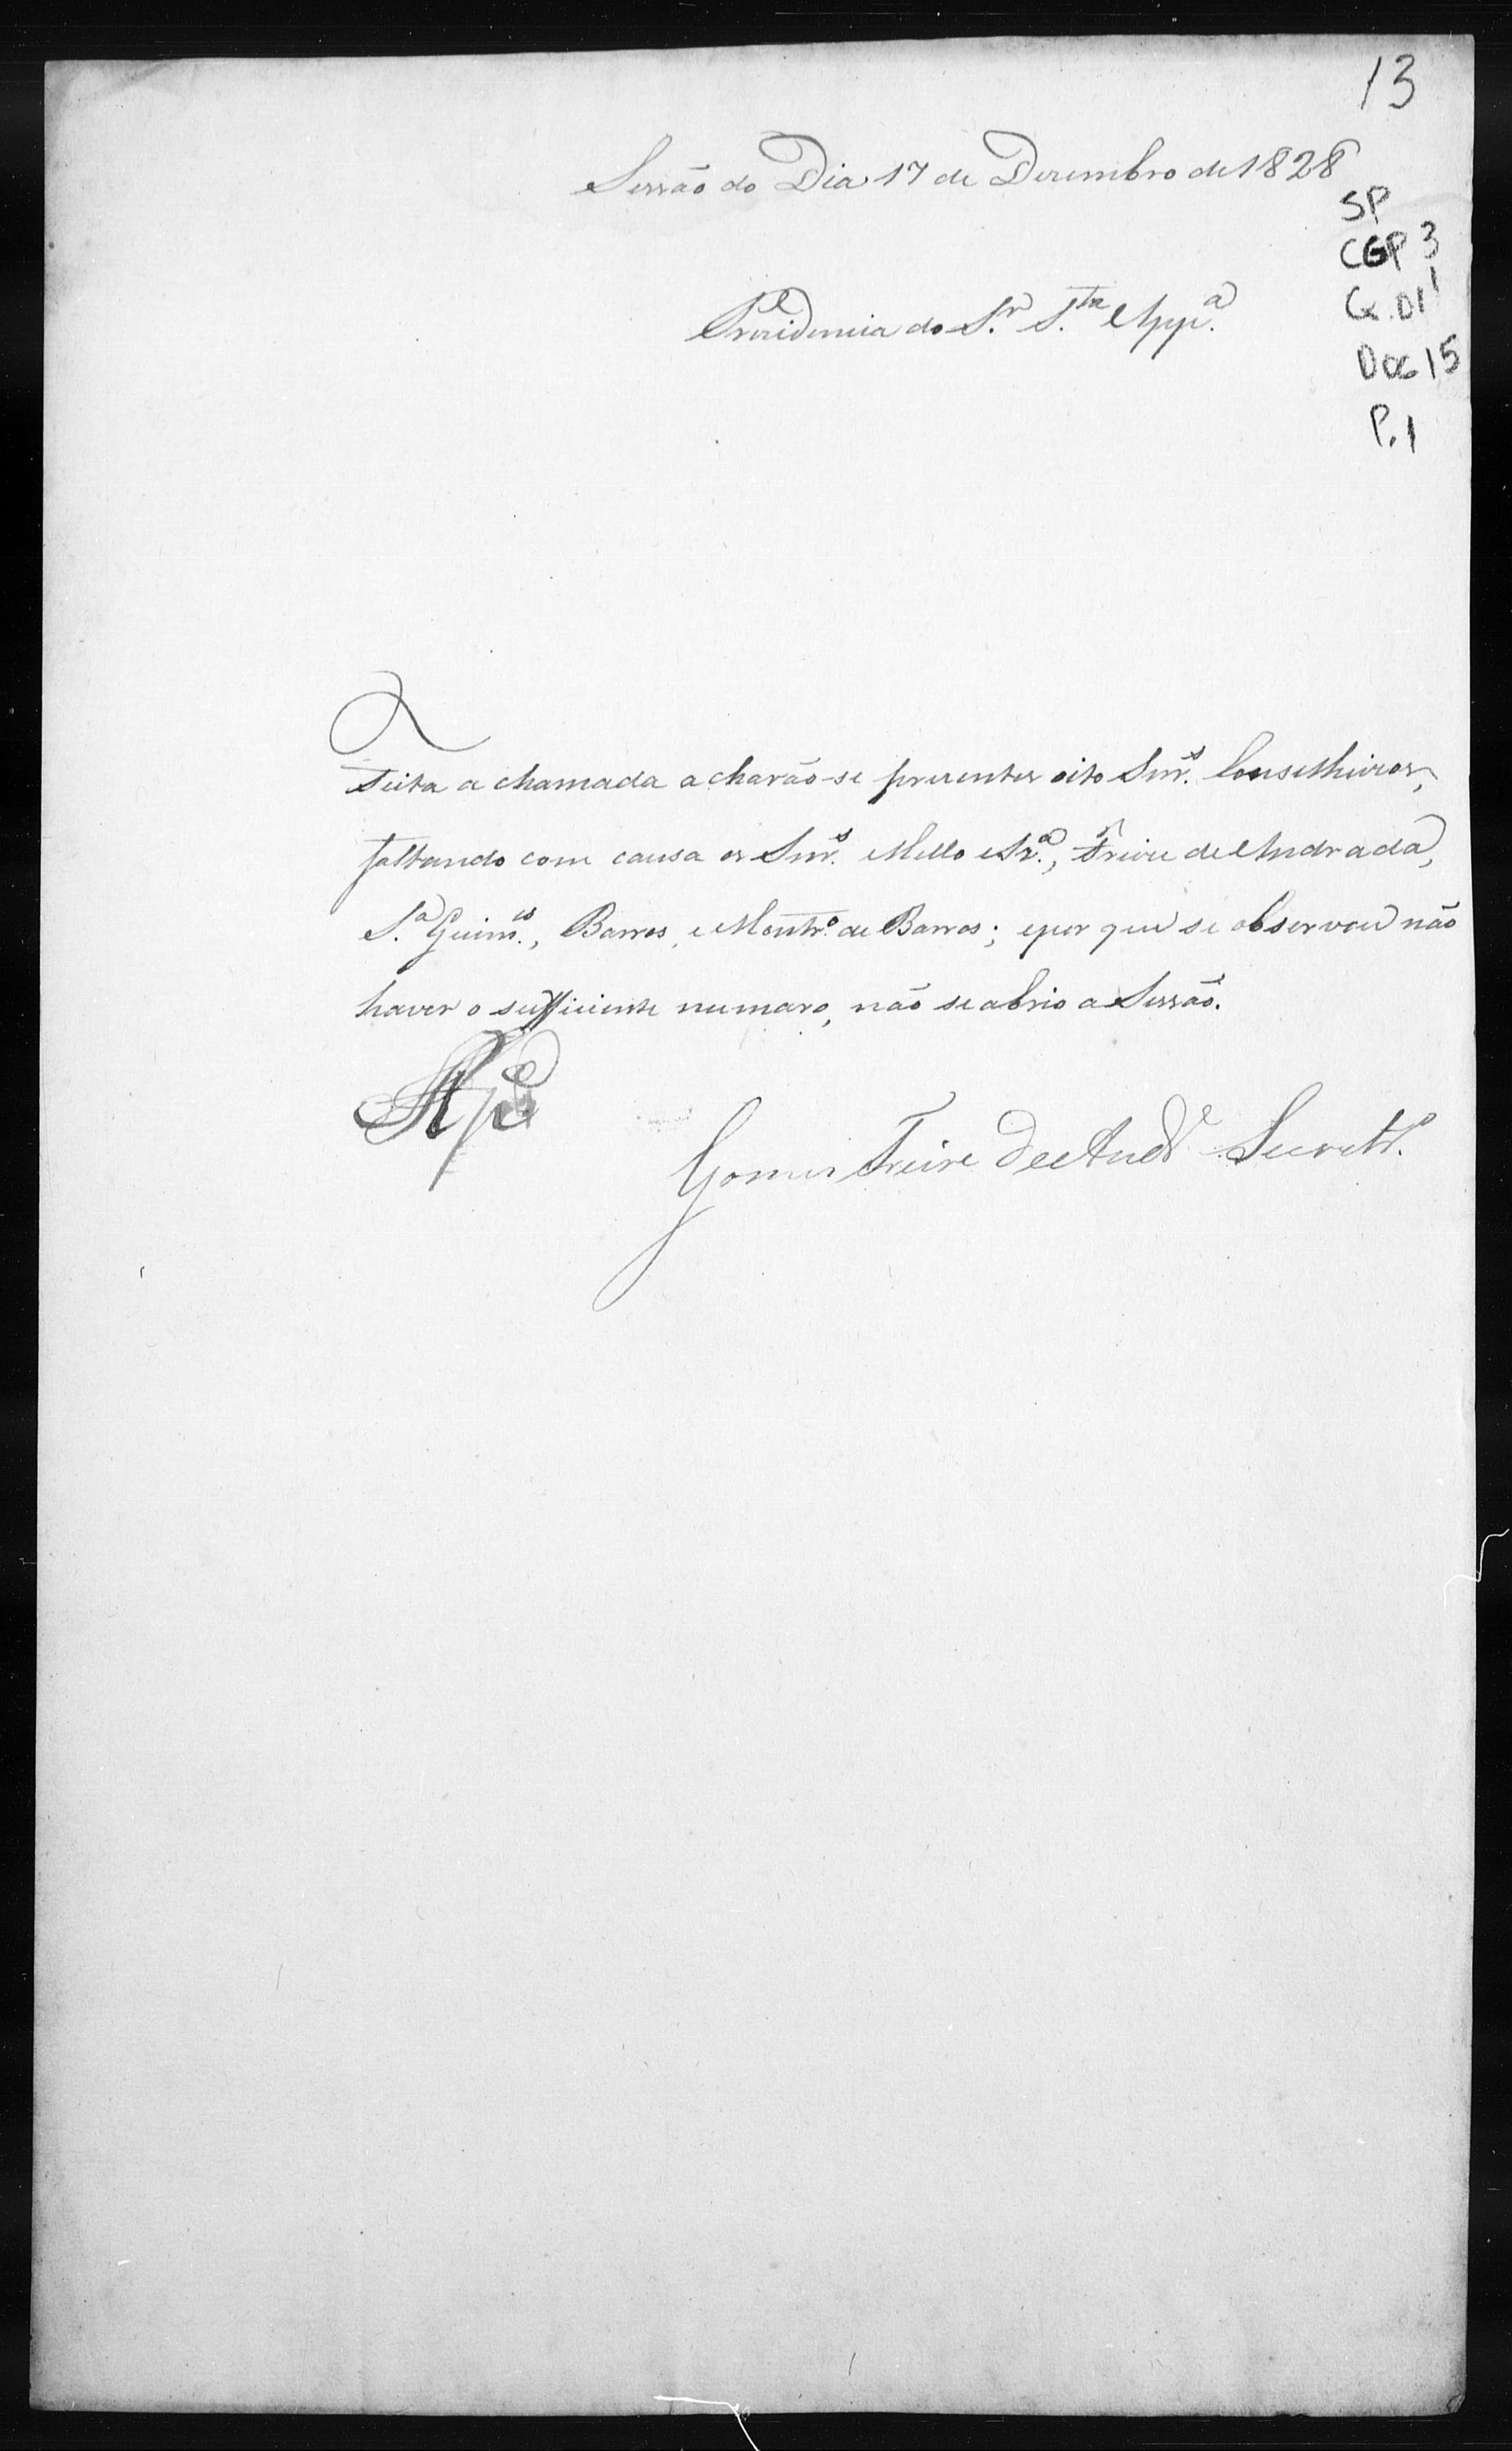 13
Sessão do Dia 17 de Dezembro de 1828
SP
CGP 3
Cx. 01
Doc 15
P. 1
Prezidencia do S.r S.ta App.a
Feita a chamada acharão-se prezentes oito Snr.s Conselheiros,
faltando com causa os Snr.s Mello e Sz.a, Freire de Andrada,
S.a Guim.es, Barros, e Montr.o de Barros; e por que se observou não
haver o sufficiente numaro, não se abrio a Sessão.
Gomes Freire de And.e Secret.